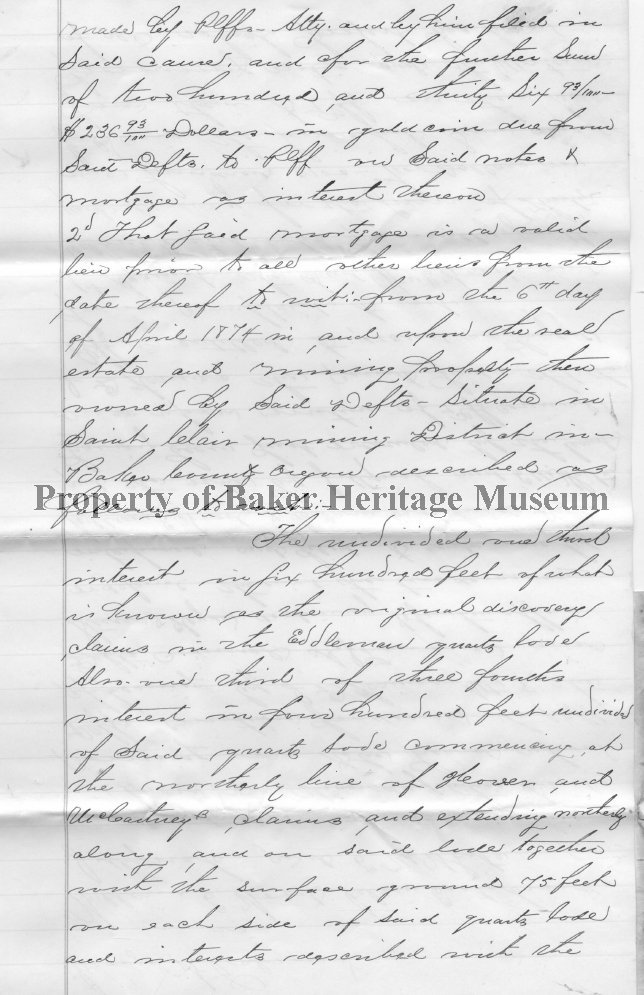 made by Plffs Atty. and by him filed in
Said cause, and for the further Sum
of two hundred and thirty Six 93/100
$236 93/100 Dollars - in gold coin due from
Said Defts. to Plff on Said notes &
mortgage as interest thereon
2d That Said mortgage is a valid
lien prior to all other liens from the
date thereof to wit: from the 6th day
of April 1874 in, and upon the real
estate and mining property then
owned by Said Defts - Situate in
Saint Clair mining District in
Baker County Oregon described as
follows to wit:-
Property of Baker Heritage Museum
The undivided one third
interest in Six hundred feet of what
is known as the original discovery
claims in the Eddleman quartz lode
Also one third of three fourths
interest in four hundred feet undivided
of Said quartz lode commencing at
the northerly line of and
McCartneys claims, and extending northerly
along, and on said lode together
with the surface ground 75 feet
on each side of said quartz lode
and interests described with the